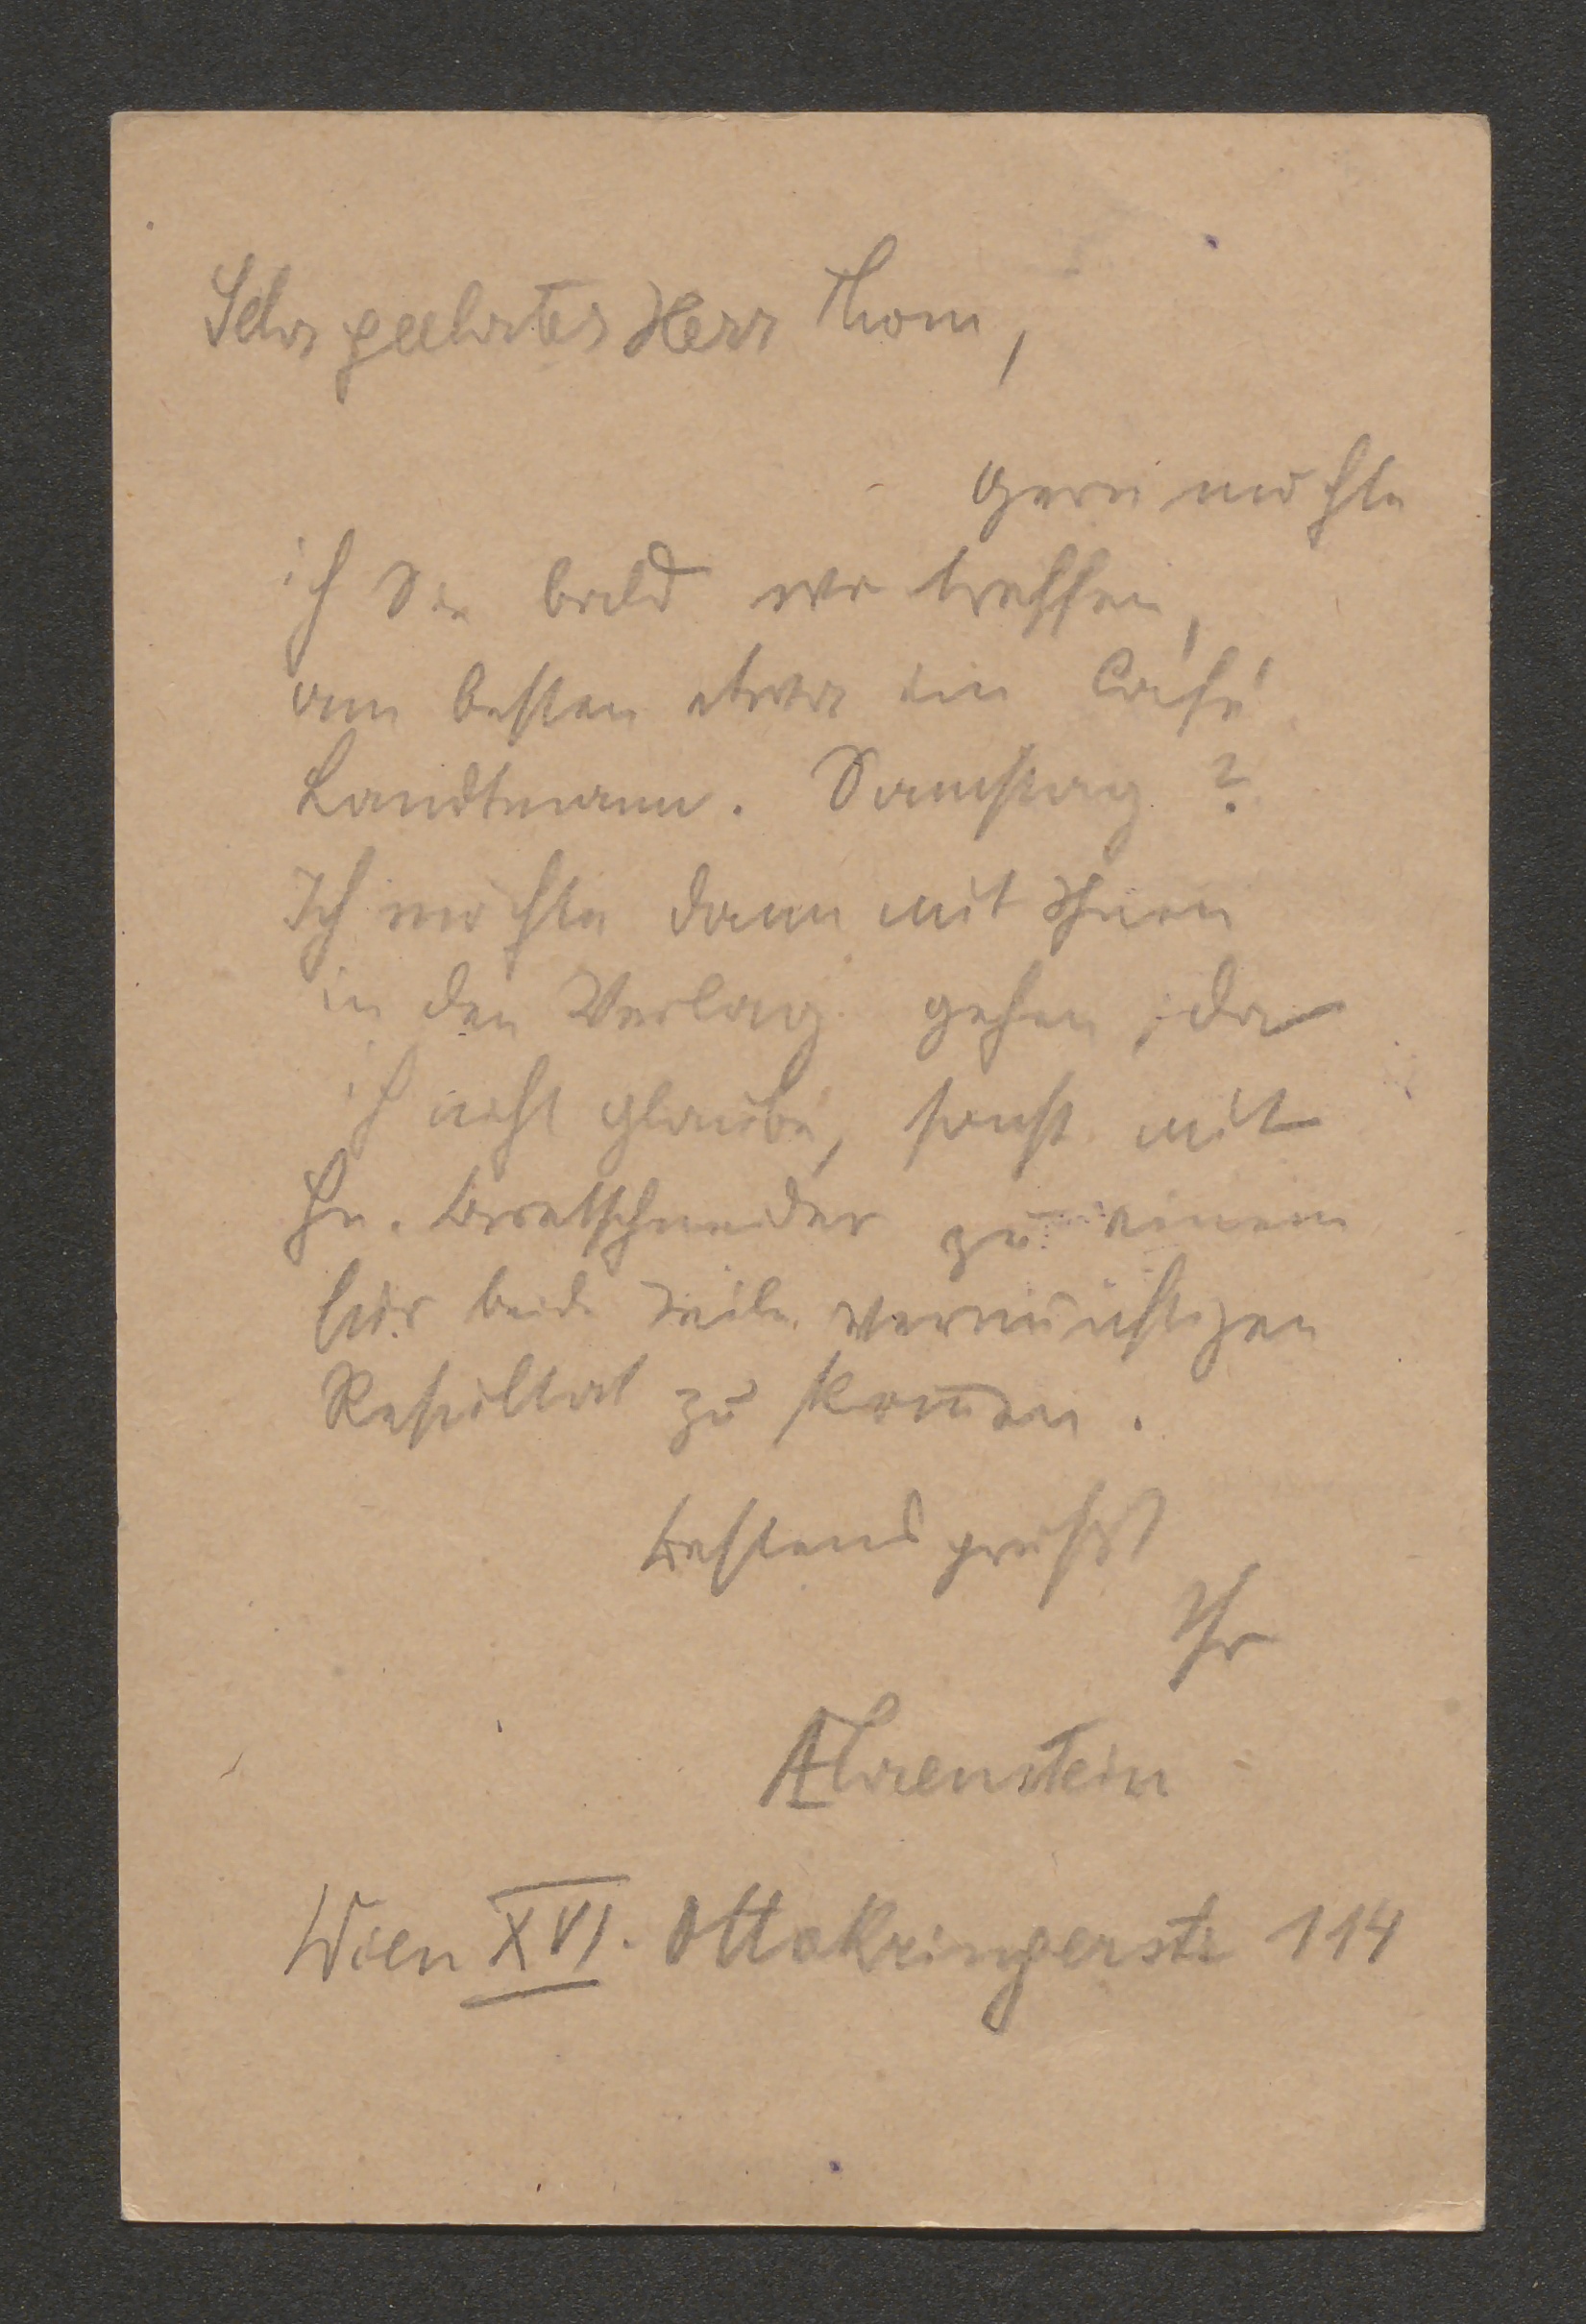 Sehr geehrter Herr Thom,
Gern möchte
ich Sie bald wo treffen,
am besten etwa im Café
Landtmann. Samstag?
Ich möchte dann mit Ihnen
in den Verlag gehen, da
ich nicht glaube, sonst mit
Hr. Bretschneider zu einem
für beide Teile vernünftigen
Resultat zu kom̅en.
Bestens grüsst
Ihr
AEhrenstein
Wien XVI. Ottakringerstr 114